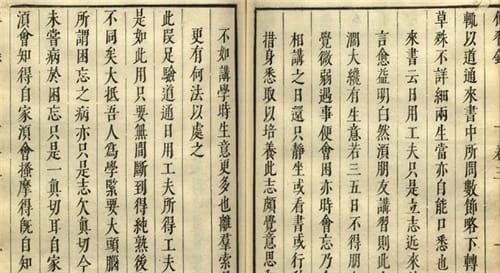 輒以道通來書中所問數節略下轉
草殊不詳細兩生當亦自能口悉也
來書云日用工夫只是立志近來
言愈益明白然須朋友講習則此
濶大纔有生意若三五日不得朋
覺微弱遇事便會困亦時會忘乃
相講之日還只靜坐或看書或行
措身悉取以培養此志頗覺意思
不如講學時生意更多也離羣索
更有何法以處之
此段足驗道通日用工夫所得工夫
是如此用只要無間斷到得純熟後
不同矣大抵吾人為學緊要大頭腦
所謂困忘之病亦只是志欠真切今
未嘗病於困忘只是一真切耳自家
須會知得自家須會搔摩得既自知